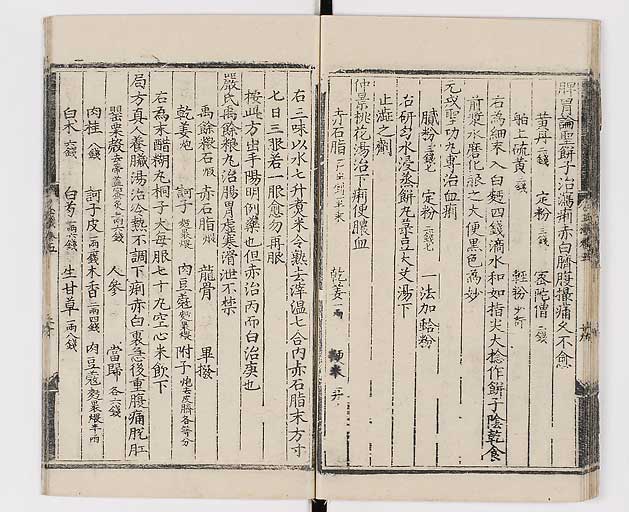 脾胃論聖餅子治瀉痢赤白臍腹撮痛久不愈
黄丹 二錢 定粉 三錢 密陀僧 二錢
舶上硫黄 三錢 輕粉 少許
右為細末入白麪四錢滴水和如指尖大捻作餅子陰乾食
前漿水磨化服之大便黒色為妙
元戎聖功丸專治血痢
膩粉 定粉 一法加蛤粉
右研匀水浸蒸餅丸菉豆大艾湯下
止澁之劑
仲景桃花湯治下痢便膿血
赤石脂 乾姜 一兩 粳米
右三味以水七升煮米令熟去滓温七合内赤石脂末方寸
七日三服若一服愈勿再服
按此方出乎陽明例藥也但赤治丙而白治庚也
嚴氏禹餘粮丸治腸胃虚寒滑泄不禁
禹餘粮石 煅 赤石脂 煅 龍骨 蓽撥
乾姜 炮 訶子 麪裹煨 肉豆蔻 麪裹煨 附子 炮去皮臍各等分
右為末醋糊丸桐子大每服七十丸空心米飲下
局方真人養臟湯治冷熱不調下痢赤白裏急後重腹痛脱肛
罌粟殻 人參 當歸 各六錢
肉桂 八錢 訶子皮 一兩二錢 木香 一兩四錢 肉豆蔻 麪裹煨半兩
白术 六錢 白芍 一兩六錢 生甘草 一兩八錢